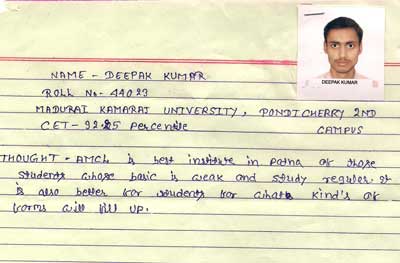 DEEPAK KUMAR
NAME - DEEPAK KUMAR
ROLL No. - 44023
MADURAI KAMARAJ UNIVERSITY, PONDICHERRY 2ND
CAMPUS
CET - 92.25 Percentile
THOUGHT - AMCL is best institute in Patna of those
students whose basic is weak and study regular. It
is also better for students for whats kind's of
forms will fill up.